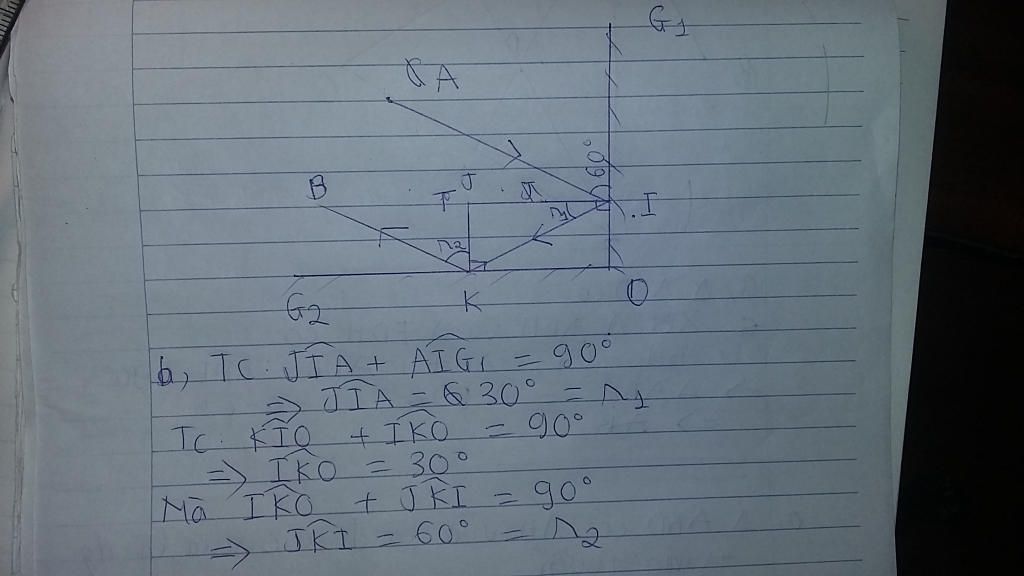 G1
A
60°
B
J
I
G2
K
O
b, TC. JIA + AIG1 = 90°
=> JIA = 30° = r1
Tc. KIO + IKO = 90°
=> IKO = 30°
Mà IKO + JKI = 90°
=> JKI = 60° = r2